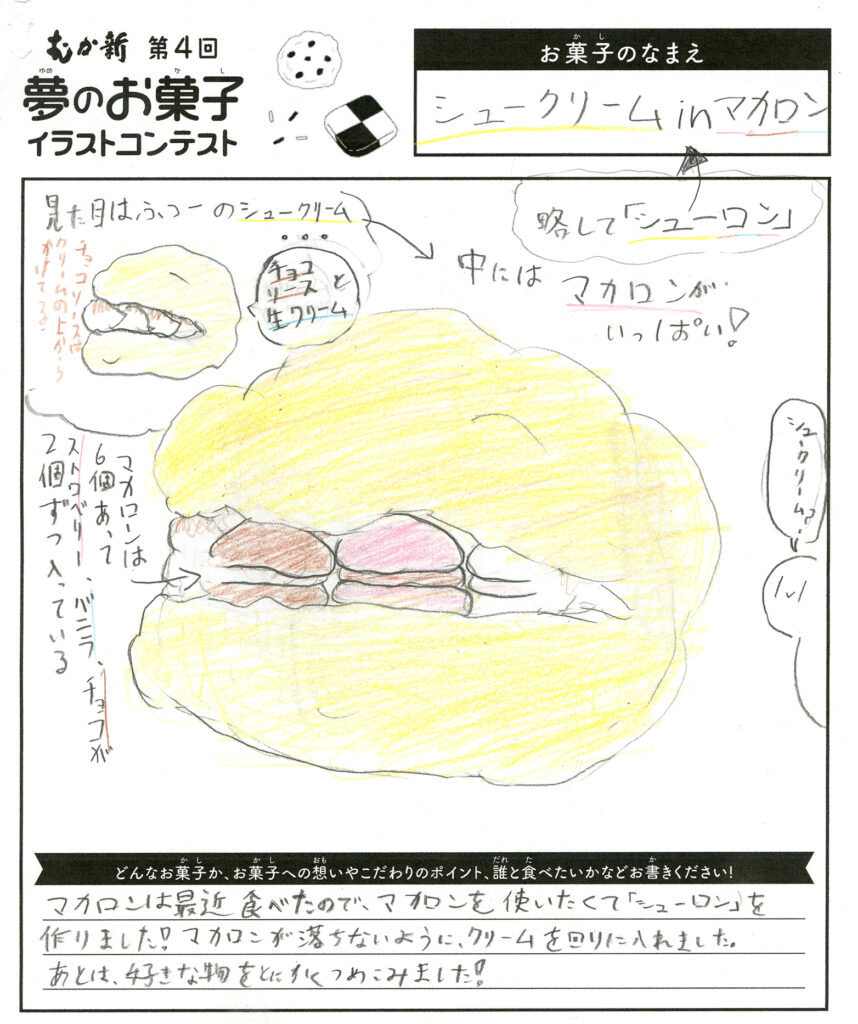 むか新 第4回
夢のお菓子
イラストコンテスト
お菓子のなまえ
シュークリームinマカロン
略して「シューロン」
見た目はふつーのシュークリーム
チョコ
ソースと
生クリーム
チョコソースは
クリームの上から
かけてる。
中には
マカロンが
いっぱい!
マカロンは
6個あって
ストロベリー、バニラ、チョコが
2個ずつ入っている
シュークリーム♪
どんなお菓子か、お菓子への想いやこだわりのポイント、誰と食べたいかなどお書きください!
マカロンは最近食べたので、マカロンを使いたくて「シューロン」を
作りました!マカロンが落ちないように、クリームを回りに入れました。
あとは、好きな物をとにかくつめこみました!